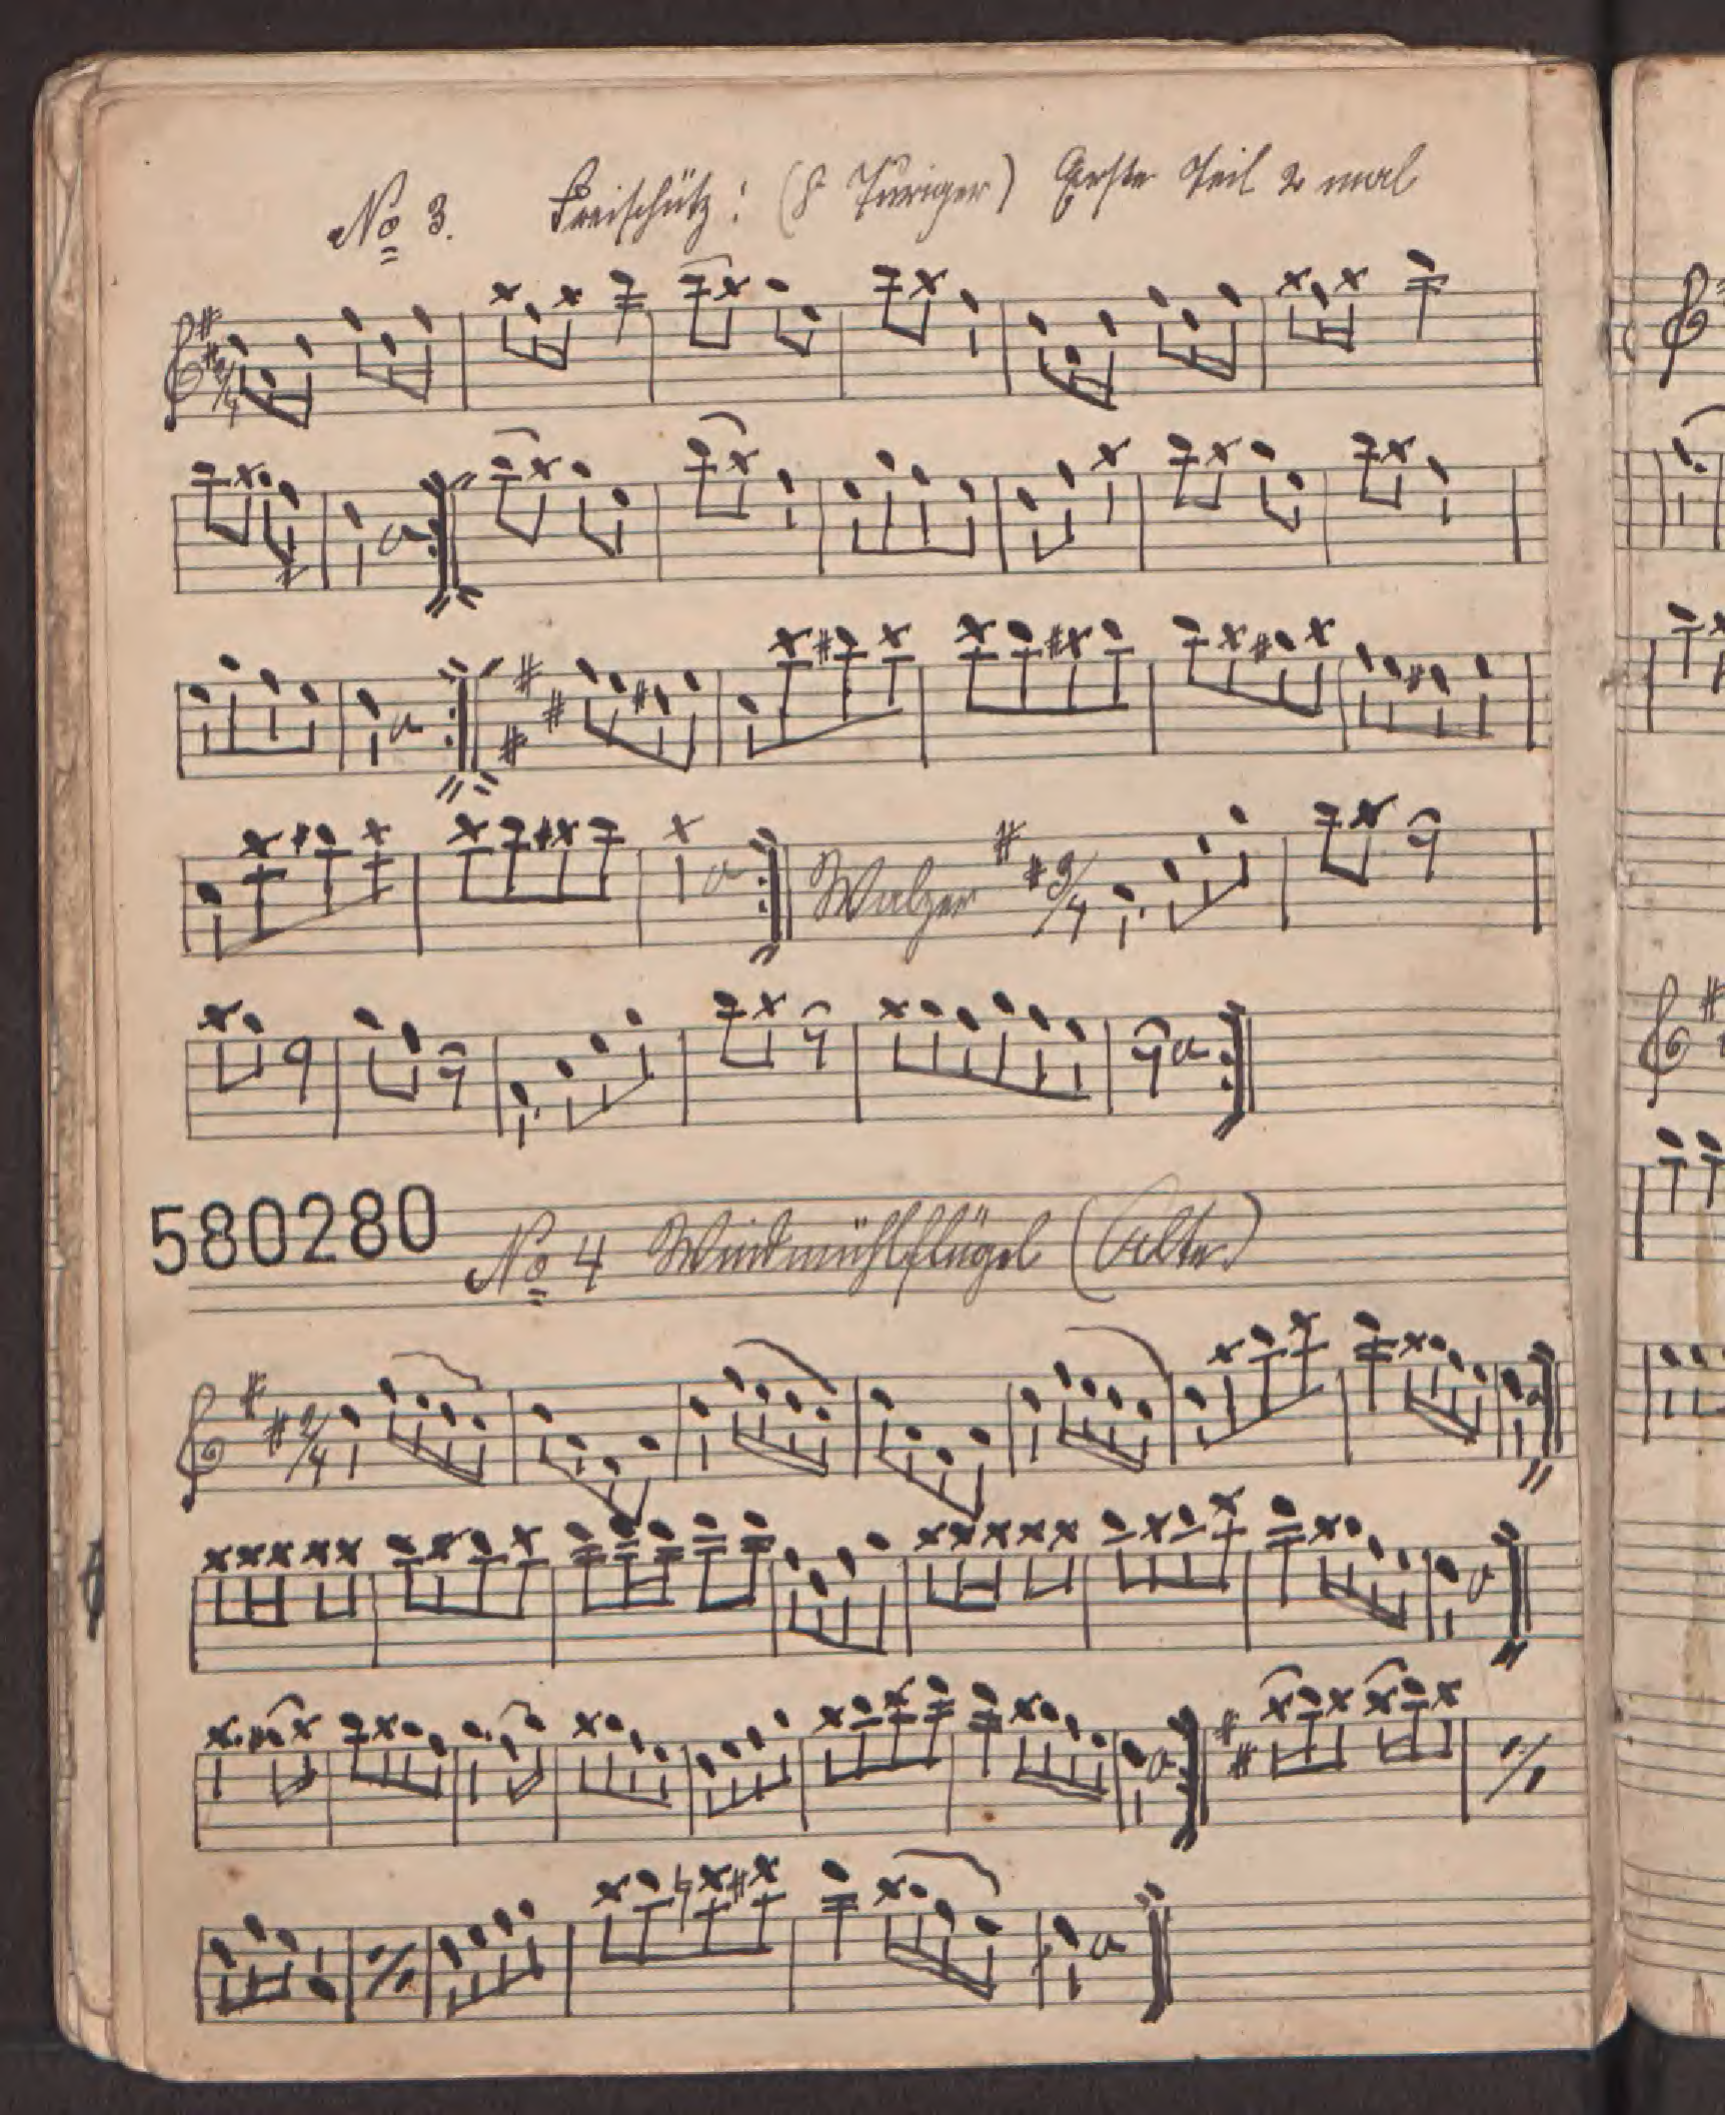 No 3. Freischütz: (8 Touriger) Erste Teil 2 mal
2/4
Walzer 3/4
580280
No 4 Windmühlflügel (Alter)
2/4